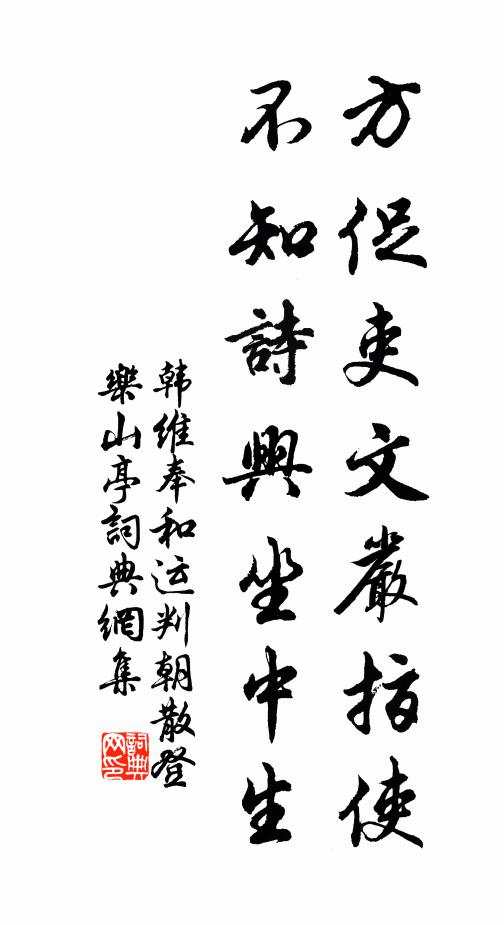 方促吏文嚴指使
不知詩興坐中生
韩維奉和运判朝散登
樂山亭詞典網集
詞典
网印